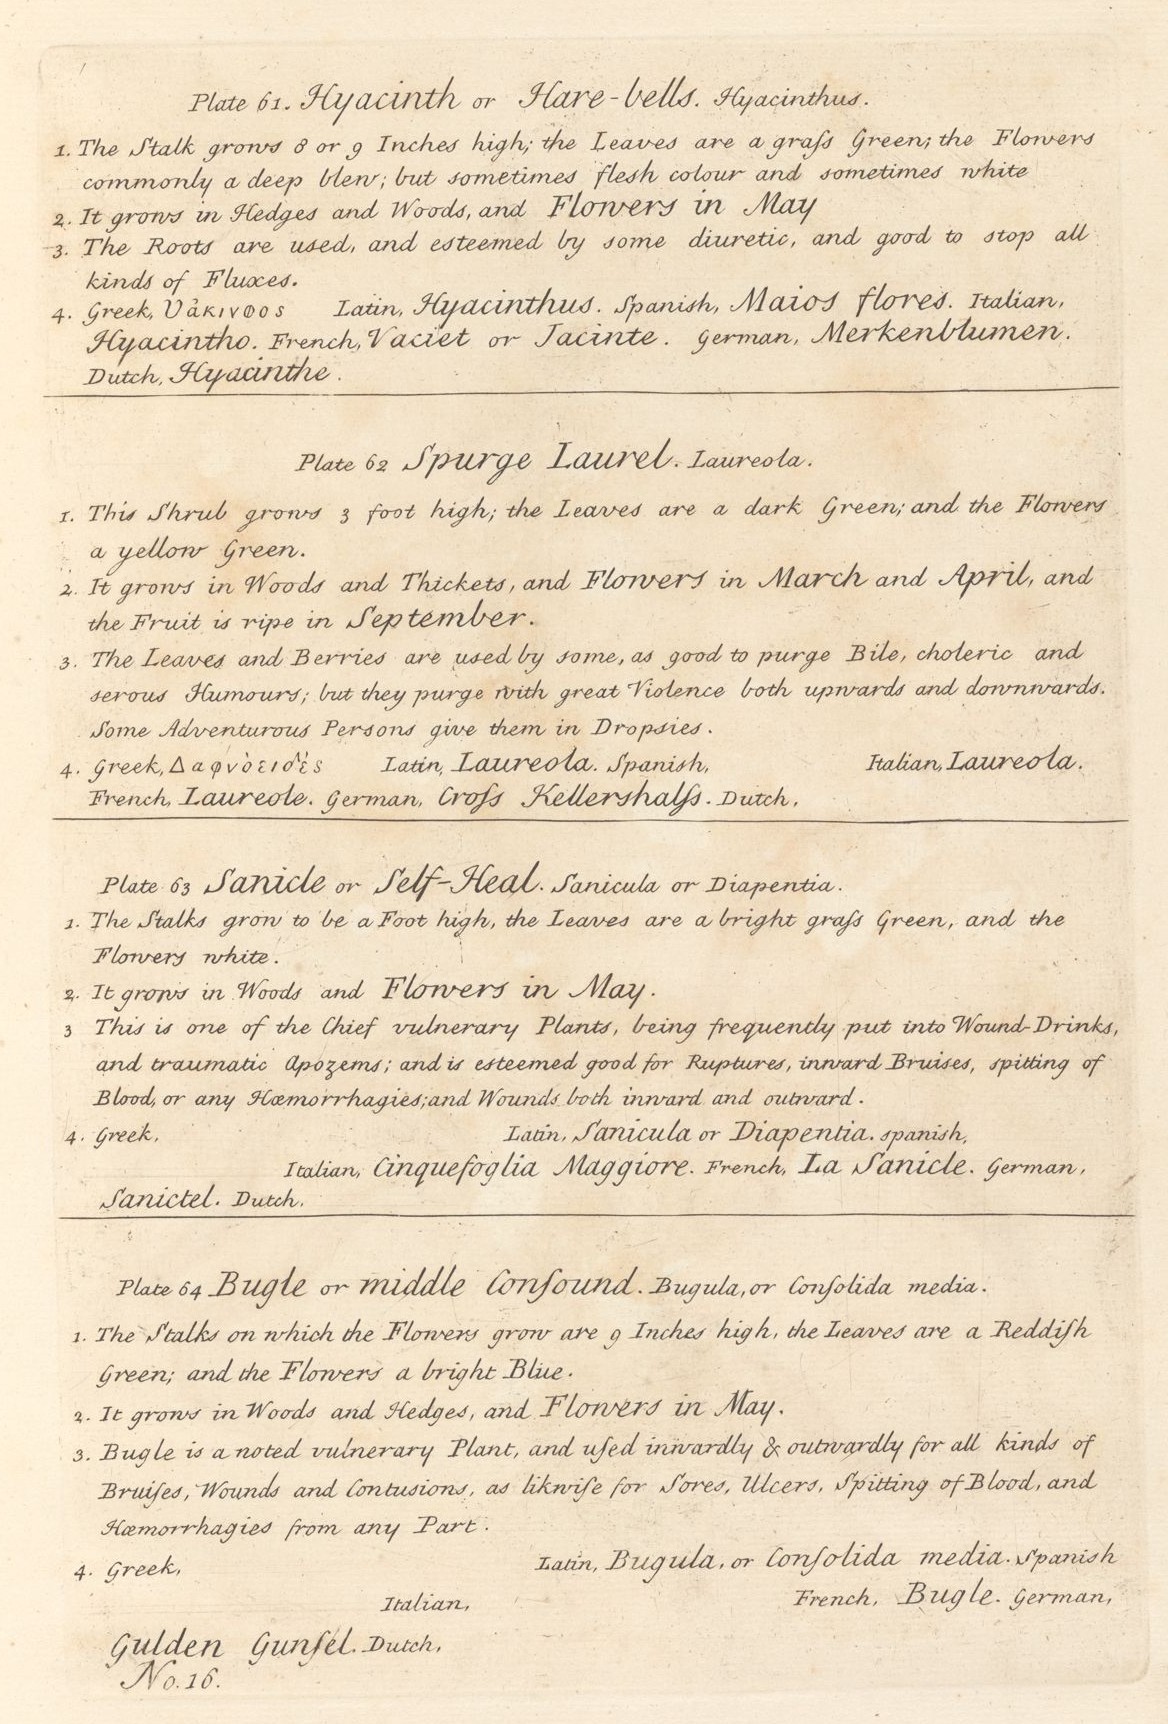 Plate 61. Hyacinth or Hare-bells. Hyacinthus.
1. The Stalk grows 8 or 9 Inches high; the Leaves are a graſs Green; the Flowers
commonly a deep blew; but sometimes flesh colour and sometimes white
2. It grows in Hedges and Woods, and Flowers in May
3. The Roots are used, and esteemed by some diuretic, and good to stop all
kinds of Fluxes.
4. Greek, Υάκινφος Latin, Hyacinthus. Spanish, Maios flores. Italian,
Hyacintho. French, Vaciet or Jacinte. German, Merkenblumen.
Dutch, Hyacinthe.
Plate 62 Spurge Laurel. Laureola.
1. This Shrub grows 3 foot high; the Leaves are a dark Green; and the Flowers
a yellow Green.
2. It grows in Woods and Thickets, and Flowers in March and April, and
the Fruit is ripe in September.
3. The Leaves and Berries are used by some, as good to purge Bile, choleric and
serous Humours; but they purge with great Violence both upwards and downwards.
Some Adventurous Persons give them in Dropsies.
4. Greek, Δαφνὸειδὲς Latin, Laureola. Spanish, Italian, Laureola.
French, Laureole. German, Croſs Kellershalſs. Dutch,
Plate 63 Sanicle or Self-Heal. Sanicula or Diapentia.
1. The Stalks grow to be a Foot high, the Leaves are a bright graſs Green, and the
Flowers white.
2. It grows in Woods and Flowers in May.
3 This is one of the Chief vulnerary Plants, being frequently put into Wound-Drinks,
and traumatic Apozems; and is esteemed good for Ruptures, inward Bruises, spitting of
Blood, or any Hæmorrhagies; and Wounds both inward and outward.
4. Greek, Latin, Sanicula or Diapentia. spanish,
Italian, Cinquefoglia Maggiore. French, La Sanicle. German,
Sanictel. Dutch,
Plate 64 Bugle or middle Conſound. Bugula, or Conſolida media.
1. The Stalks on which the Flowers grow are 9 Inches high, the Leaves are a Reddiſh
Green; and the Flowers a bright Blue.
2. It grows in Woods and Hedges, and Flowers in May.
3. Bugle is a noted vulnerary Plant, and uſed inwardly & outwardly for all kinds of
Bruiſes, Wounds and Contusions, as likwiſe for Sores, Ulcers, Spitting of Blood, and
Hæmorrhagies from any Part.
4. Greek, Latin, Bugula, or Conſolida media. Spanish
Italian, French, Bugle. German,
Gulden Gunſel. Dutch,
No. 16.